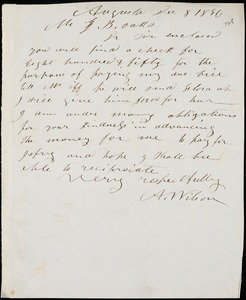 Augusta Dec 8 1856
Mr Z. B. Oakes
Dr Sir enclosed
you will find a check for
Eight hundred & fifty for the
porpours of paying my due bill
tell Mr if he will send Flora up
I will give him for her
I am under many obligations
for your kindness in advancing
the money for me to pay for
Jefry and hope I shall bee
able to reciprocate
Verry respectfully
A. Wilson